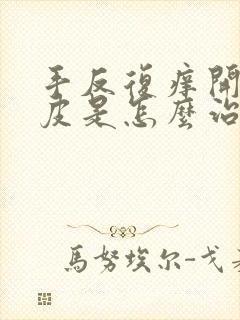 手反復癢開
皮是怎麼治
馬努埃尔-戈